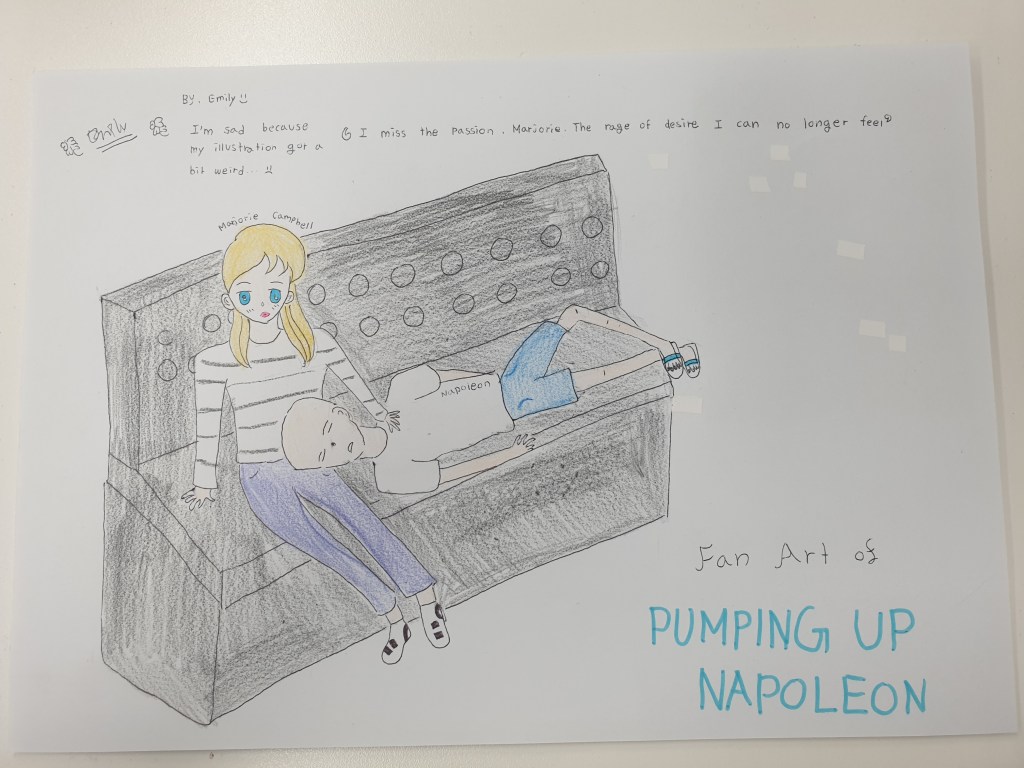 By. Emily
Emily
I'm sad because
my illustration got a
bit weird...
I miss the passion, Marjorie. The rage of desire I can no longer feel
Marjorie Campbell
Napoleon
Fan Art of
PUMPING UP
NAPOLEON